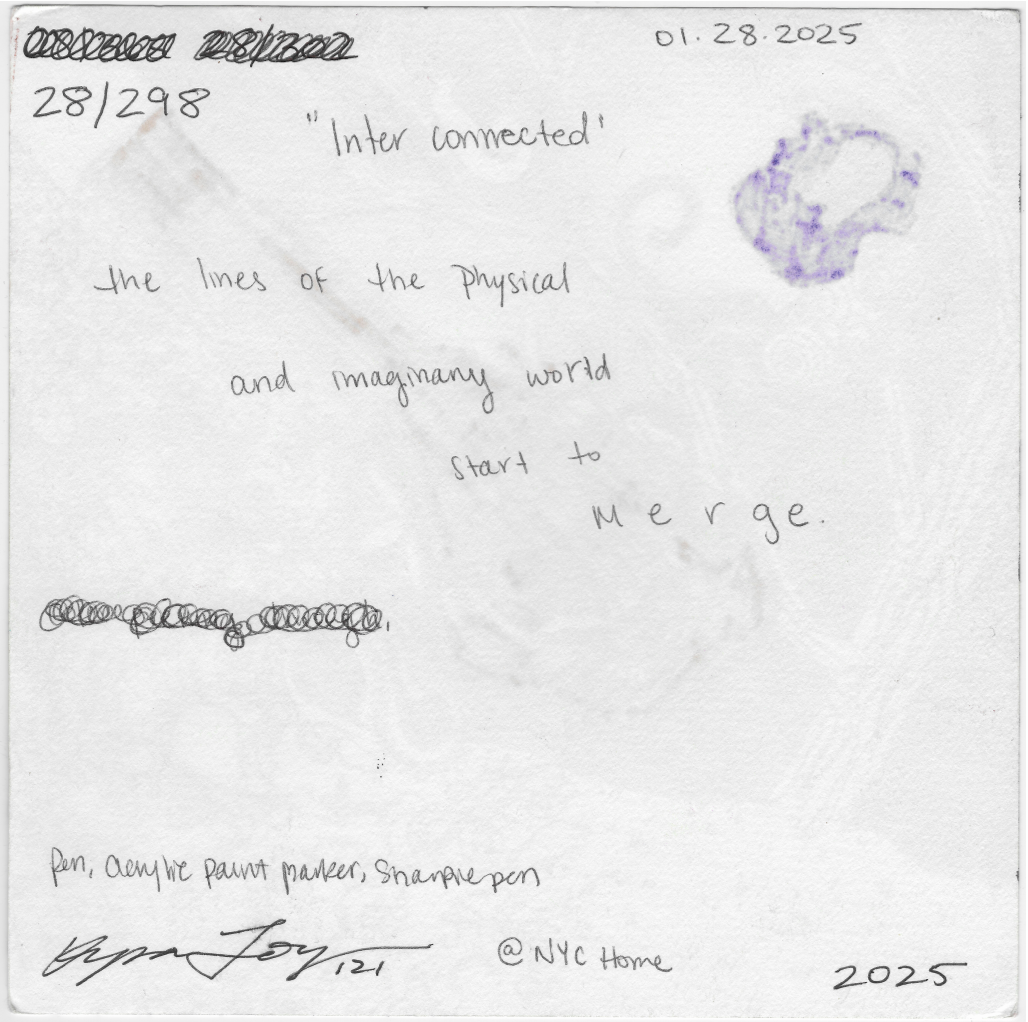 01.28.2025
28/298
"Inter connected"
the lines of the physical
and imaginary world
start to
merge.
pen, acrylic paint marker, sharpie pen
Joy 121
@NYC Home
2025